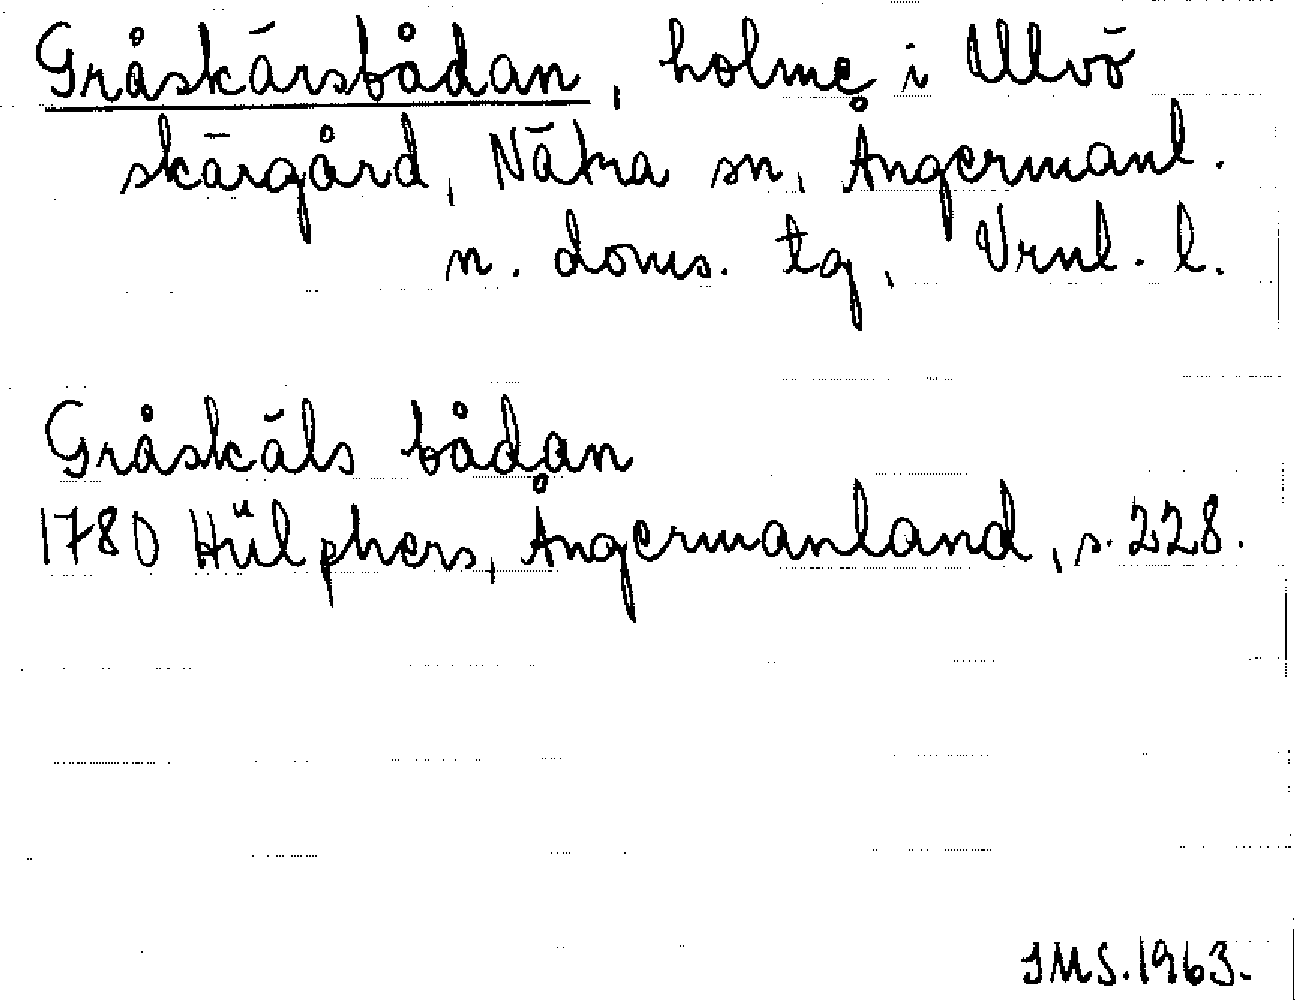 Gråskärsbådan, holme i Ulvö
skärgård, Nätra sn, Ångermanl.
n. doms. tg, Vrnl. l.
Gråskäls bådan
1780 Hülphers, Ångermanland, s. 228.
JMS. 1963.